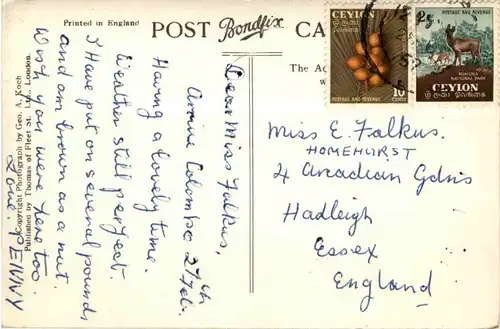 Printed in England
POST Bondfix CA
The Ad
w
CEYLON
POSTAGE AND REVENUE
10
CENTS
POSTAGE AND REVENUE
RUHUNA
NATIONAL PARK
CEYLON
Dear Miss Falkus,
Arrive Colombo 27th Feb.
Having a lovely time.
Weather still perfect.
I have put on several pounds
and am brown as a nut.
Wish you were here too.
Love. PENNY
Copyright Photograph by Geo. A. Koch
Published by Thomas of Fleet St. Ltd., London.
Miss E. Falkus.
HOMEHURST
4 Arcadian Gdns
Hadleigh
Essex
England